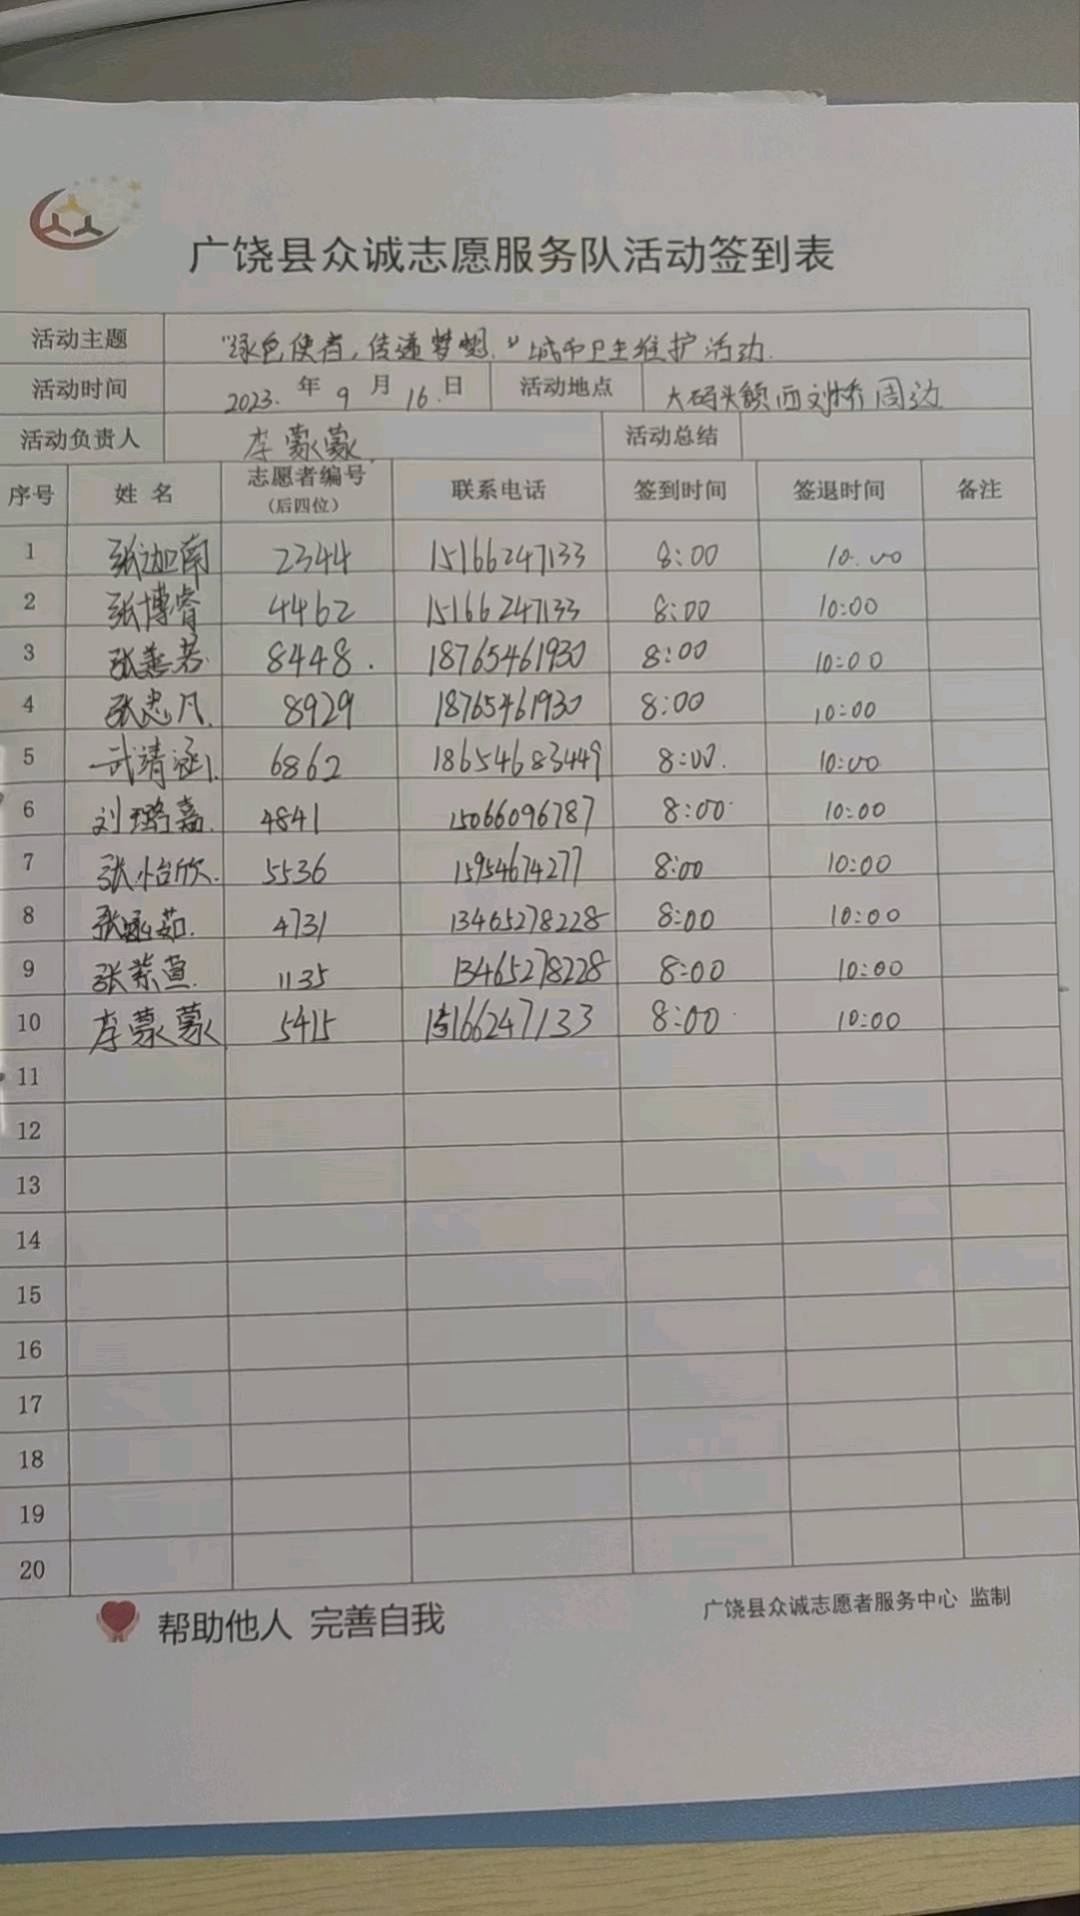 广饶县众诚志愿服务队活动签到表
活动主题 "绿色使者,传递梦想."城市卫生维护活动.
活动时间 2023. 年 9 月 16. 日 活动地点 大码头镇西刘桥周边
活动负责人 李蒙蒙. 活动总结
序号 姓 名 志愿者编号(后四位) 联系电话 签到时间 签退时间 备注
1 张迦南 2344 15166247133 8:00 10:00
2 张博睿 4462 15166247133 8:00 10:00
3 张善若. 8448. 18765461930 8:00 10:00
4 张忠凡. 8929 18765461930 8:00 10:00
5 武清涵. 6862 18654683449 8:00. 10:00
6 刘璐嘉. 4841 15066096787 8:00 10:00
7 张怡欣. 5536 15954674277 8:00 10:00
8 张涵茹. 4731 13465278228 8:00 10:00
9 张紫萱. 1135 13465278228 8:00 10:00
10 李蒙蒙 5415 15166247133 8:00 10:00
11
12
13
14
15
16
17
18
19
20
帮助他人 完善自我
广饶县众诚志愿者服务中心 监制